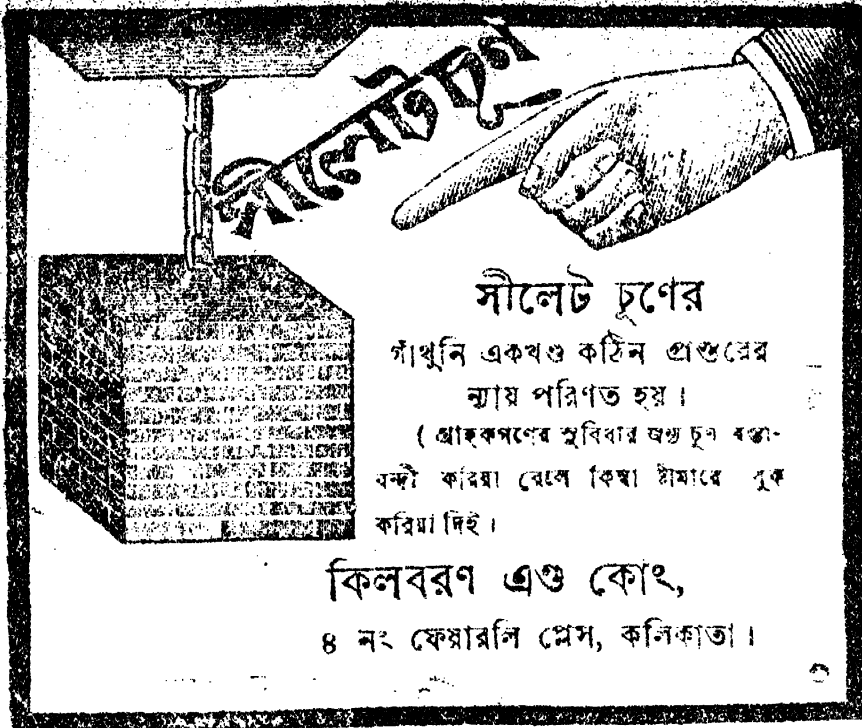 সীলেটচূণ
সীলেট চূণের
গাঁথুনি একখণ্ড কঠিন প্রস্তরের
ন্যায় পরিণত হয়।
( গ্রাহকগণের সুবিধার জন্য চূণ বস্তা-
বন্দী করিয়া রেলে কিম্বা ষ্টীমারে বুক
করিয়া দিই।
কিলবরণ এণ্ড কোং,
৪ নং ফেয়ারলি প্লেস, কলিকাতা।
৩